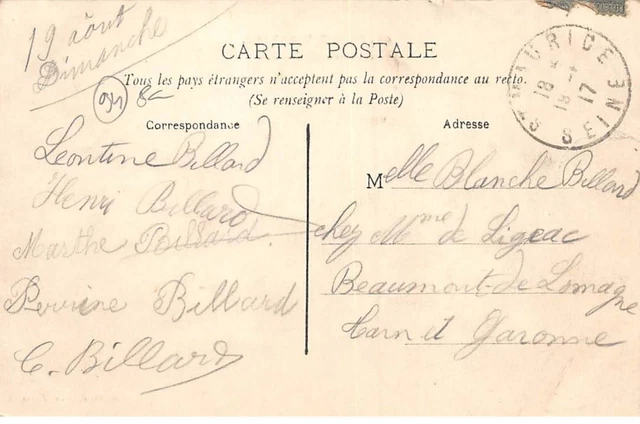 19 août
Dimanche
CARTE POSTALE
Tous les pays étrangers n'acceptent pas la correspondance au recto.
(Se renseigner à la Poste)
94
8-
ST MAURICE
18 17
SEINE
Correspondance
Leontine Billard
Henri Billard
Marthe Billard
Perrine Billard
C. Billard
Adresse
Melle Blanche Billard
chez Mme de Ligeac
Beaumont-de-Lomagne
Tarn et Garonne